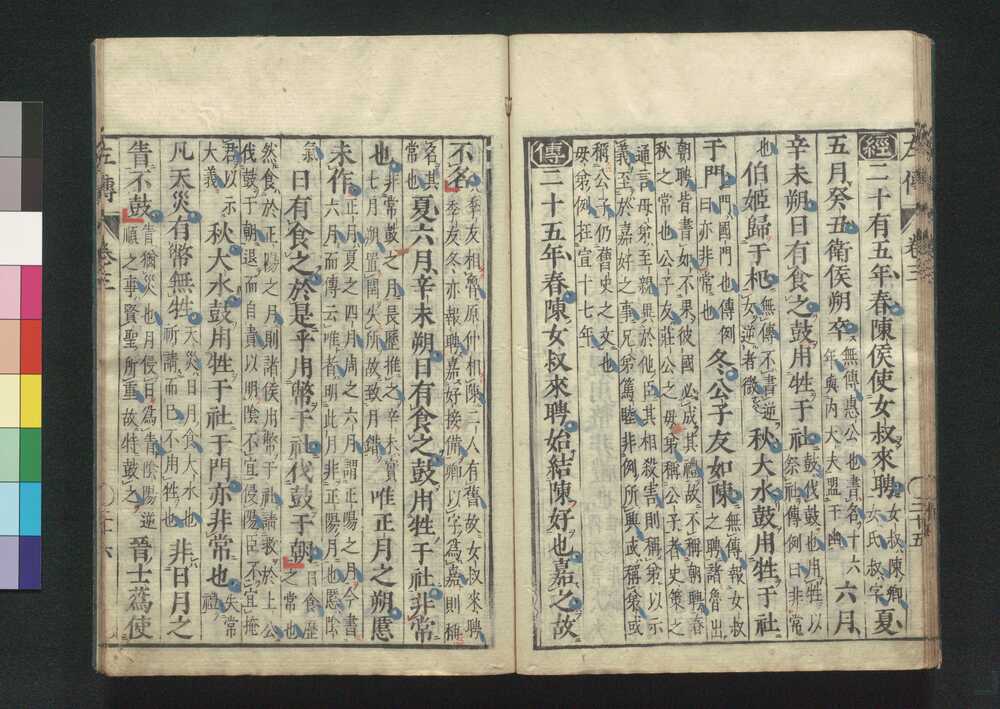 左傳 卷三 二十五
經二十有五年春陳侯使女叔來聘女叔陳卿女氏叔字夏
五月癸丑衛侯朔卒無傳惠公也書名十六年與内大夫盟于幽六月
辛未朔日有食之鼓用牲于社鼓伐鼓也用牲以祭社傳例曰非常
也伯姬歸于杞無傳不書逆女逆者微秋大水鼓用牲于社
于門門國門也傳例曰亦非常也冬公子友如陳無傳報女叔之聘諸魯出
朝聘皆書如不果彼國必成其禮故不稱朝聘春
秋之常也公子友莊公之母弟稱公子者史策之
通言母弟至親異於他臣其相殺害則稱弟以示
義至於嘉好之事兄弟篤睦非例所興或稱弟或
稱公子仍舊史之文也
母弟例在宣十七年
傳二十五年春陳女叔來聘始結陳好也嘉之故
不名季友相魯原仲相陳二人有舊故女叔來聘季友冬亦報聘嘉好接備卿以字為嘉則稱
名其常也夏六月辛未朔日有食之鼓用牲于社非常
也非常鼓之月長歷推之辛未實七月朔置閏失所故致月錯唯正月之朔慝
未作正月夏之四月周之六月謂正陽之月今書六月而傳云唯者明此月非正陽月也慝陰
氣日有食之於是乎用幣于社伐鼓于朝日食歷之常也
然食於正陽之月則諸侯用幣于社請救於上公
伐鼓于朝退而自責以明陰不宜侵陽臣不宜掩
君以示大義秋大水鼓用牲于社于門亦非常也失常禮
凡天災有幣無牲天災日月食大水也祈請而已不用牲也非日月之
眚不鼓眚猶災也月侵日為眚陰陽逆順之事賢聖所重故特鼓之晉士蒍使
左傳 卷三 二十六